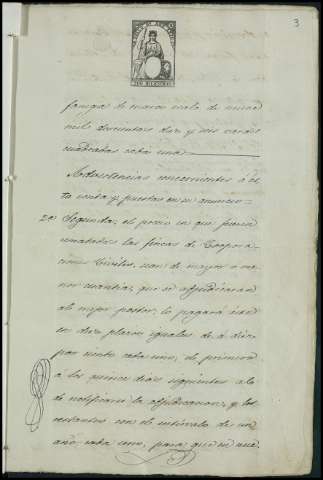 3
fanega de marco real de nueve
mil doscientas diez y seis varas
cuadradas cada una
Advertencias concernientes á es-
ta venta y puestas en su anuncio
2ª Segunda, el precio en que fueren
rematadas las fincas de Corpora-
ciones Civiles, sean de mayor o me-
nor cuantia, que se adjudicaran
al mejor postor, lo pagará este
en diez plazos iguales de á diez
por ciento cada uno; el primero
á los quince dias siguientes al
de notificarse la adjudicacion, y los
restantes con el intérvalo de un
año cada uno, para que en nue-